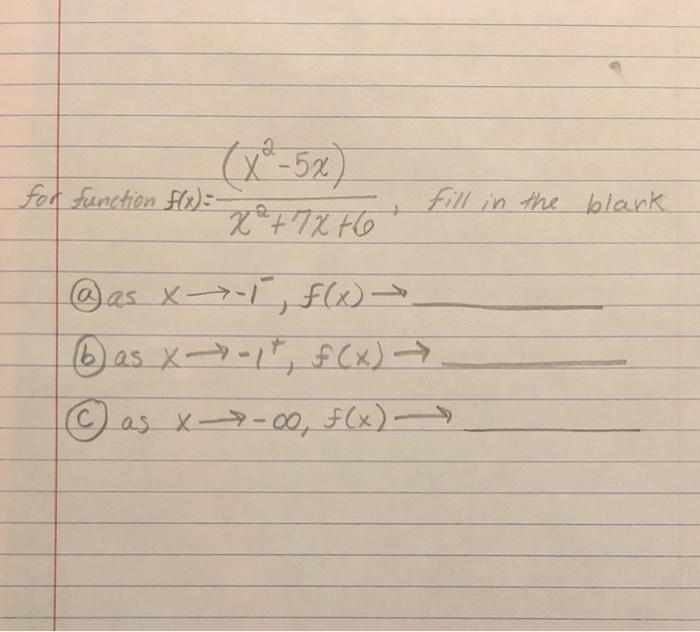 for function f(x)= (x²-5x) / x²+7x+6 , fill in the blank
(a) as x→-1⁻, f(x)→ ________
(b) as x→-1⁺, f(x)→ ________
(c) as x→-∞, f(x)→ ________